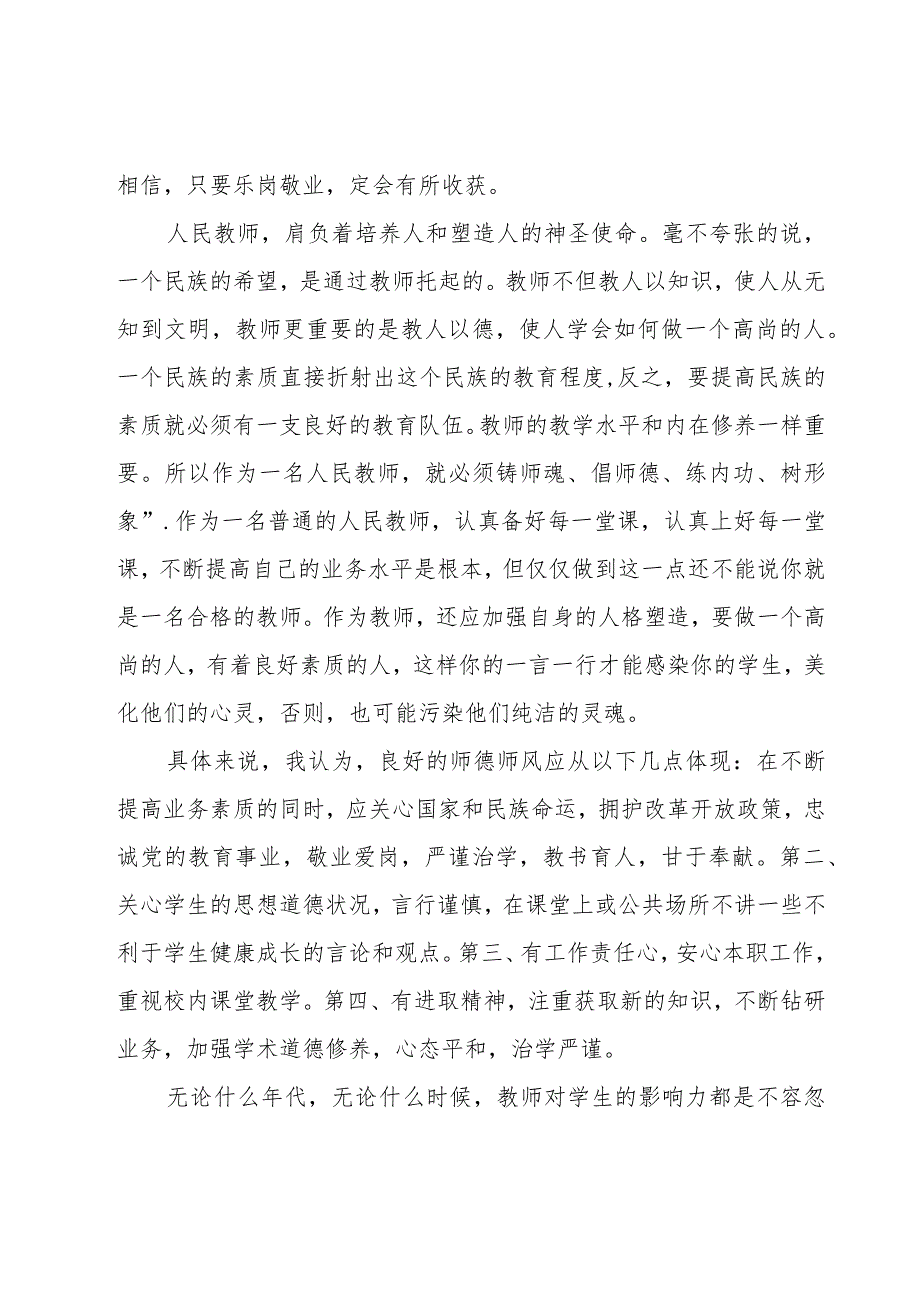 相信，只要乐岗敬业，定会有所收获。
人民教师，肩负着培养人和塑造人的神圣使命。毫不夸张的说，
一个民族的希望，是通过教师托起的。教师不但教人以知识，使人从无
知到文明，教师更重要的是教人以德，使人学会如何做一个高尚的人。
一个民族的素质直接折射出这个民族的教育程度,反之，要提高民族的
素质就必须有一支良好的教育队伍。教师的教学水平和内在修养一样重
要。所以作为一名人民教师，就必须铸师魂、倡师德、练内功、树形
象”.作为一名普通的人民教师，认真备好每一堂课，认真上好每一堂
课，不断提高自己的业务水平是根本，但仅仅做到这一点还不能说你就
是一名合格的教师。作为教师，还应加强自身的人格塑造，要做一个高
尚的人，有着良好素质的人，这样你的一言一行才能感染你的学生，美
化他们的心灵，否则，也可能污染他们纯洁的灵魂。
具体来说，我认为，良好的师德师风应从以下几点体现：在不断
提高业务素质的同时，应关心国家和民族命运，拥护改革开放政策，忠
诚党的教育事业，敬业爱岗，严谨治学，教书育人，甘于奉献。第二、
关心学生的思想道德状况，言行谨慎，在课堂上或公共场所不讲一些不
利于学生健康成长的言论和观点。第三、有工作责任心，安心本职工作，
重视校内课堂教学。第四、有进取精神，注重获取新的知识，不断钻研
业务，加强学术道德修养，心态平和，治学严谨。
无论什么年代，无论什么时候，教师对学生的影响力都是不容忽